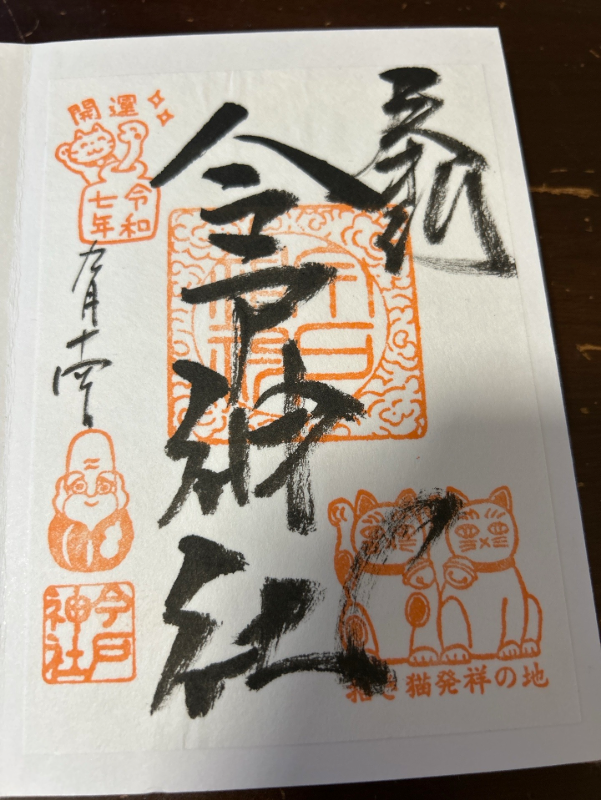 奉拝
今戸神社
開運
令和
七年
九月十四日
今戸
神社
今戸
神社
招き猫発祥の地